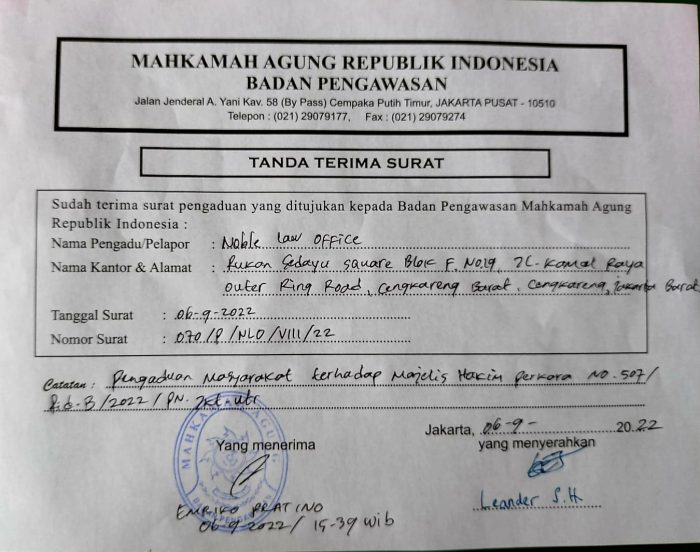 MAHKAMAH AGUNG REPUBLIK INDONESIA
BADAN PENGAWASAN
Jalan Jenderal A. Yani Kav. 58 (By Pass) Cempaka Putih Timur, JAKARTA PUSAT - 10510
Telepon : (021) 29079177, Fax : (021) 29079274
TANDA TERIMA SURAT
Sudah terima surat pengaduan yang ditujukan kepada Badan Pengawasan Mahkamah Agung
Republik Indonesia :
Nama Pengadu/Pelapor : Noble Law OFFice
Nama Kantor & Alamat : Rukan Sedayu Square Blok F. No.19, Jl. Kamal Raya
outer Ring Road, Cengkareng Barat, Cengkareng, Jakarta Barat
Tanggal Surat : 06-9-2022
Nomor Surat : 070/P/NLO/VIII/22
Catatan : Pengaduan Masyarakat terhadap Majelis Hakim perkara NO. 507/
Pid-B/2022/PN. Jkt-utr
Jakarta, 06-9- 2022
Yang menerima
yang menyerahkan
MAHKAMAH AGUNG
BADAN PENGAWASAN
EMRIKO PRATINO
06-9-2022/ 15-39 wib
Leander S.H